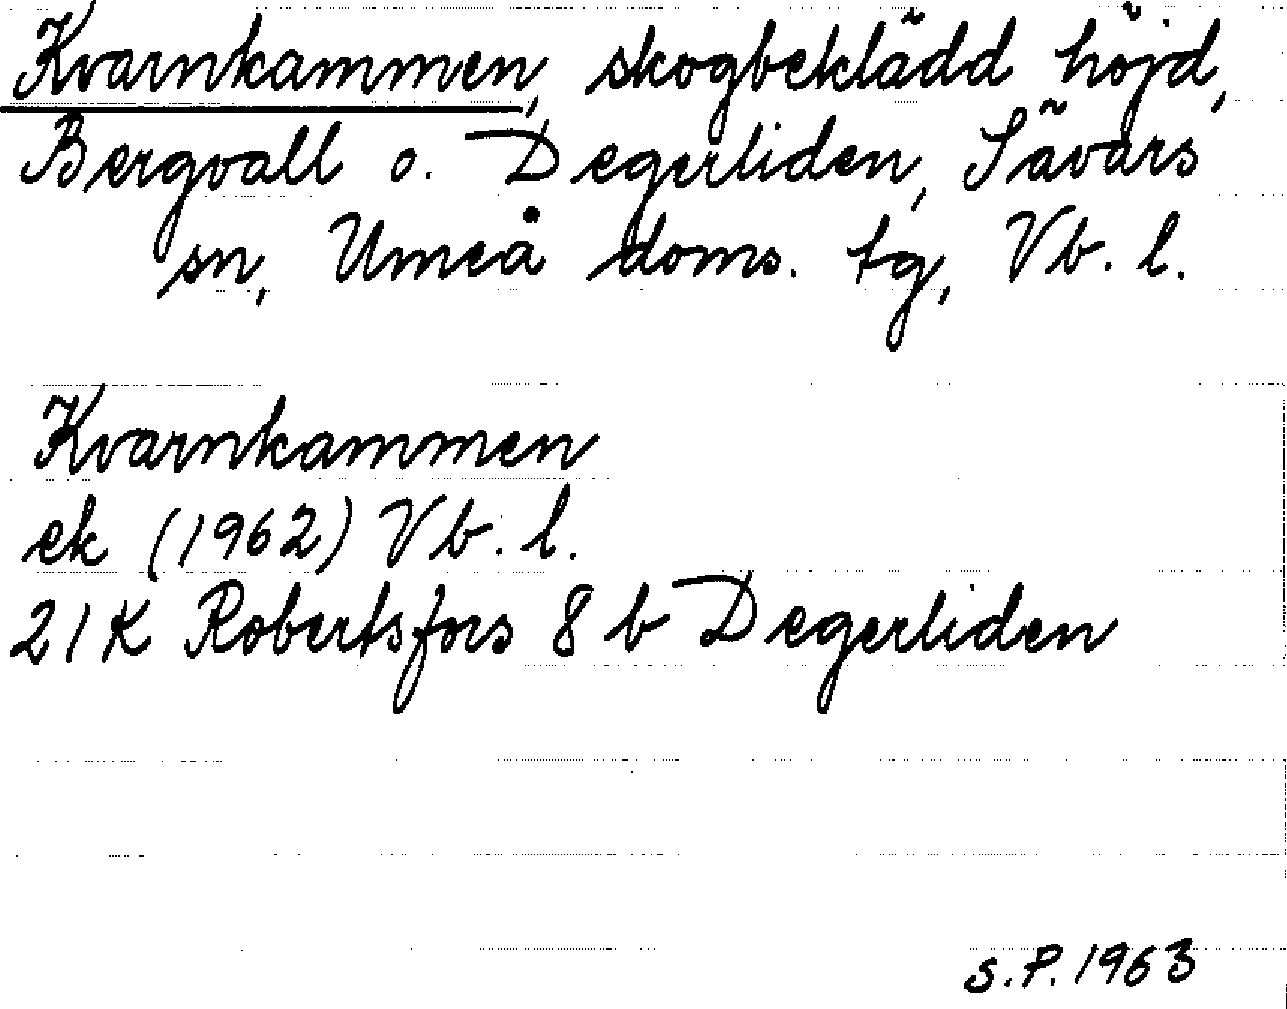 Kvarnkammen, skogbeklädd höjd,
Bergvall o. Degerliden, Sävars
sn, Umeå doms. tg, Vb. l.
Kvarnkammen
ek (1962) Vb. l.
21 K Robertsfors 8 b Degerliden
S.P. 1963